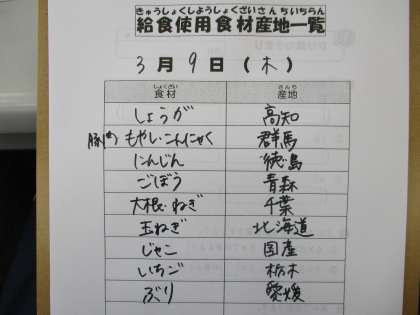 きゅうしょくしようしょくざいさんちいちらん
給食使用食材産地一覧
3月9日(木)
しょくざい さんち
食材 産地
しょうが 高知
豚肉 もやし・こんにゃく 群馬
にんじん 徳島
ごぼう 青森
大根・ねぎ 千葉
玉ねぎ 北海道
じゃこ 国産
いちご 栃木
ぶり 愛媛